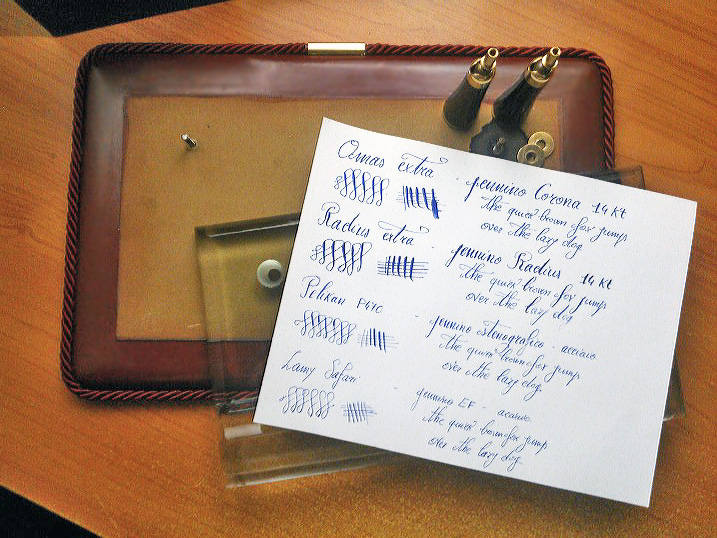 Omas extra - pennino Corona 14 Kt
the quick brown fox jump
over the lazy dog
Radius extra - pennino Radius 14 Kt
the quick brown fox jump
over the lazy dog
Pelikan P470 - pennino stenografico - acciaio
the quick brown fox jump
over the lazy dog
Lamy Safari - pennino EF - acciaio
the quick brown fox jump
over the lazy dog